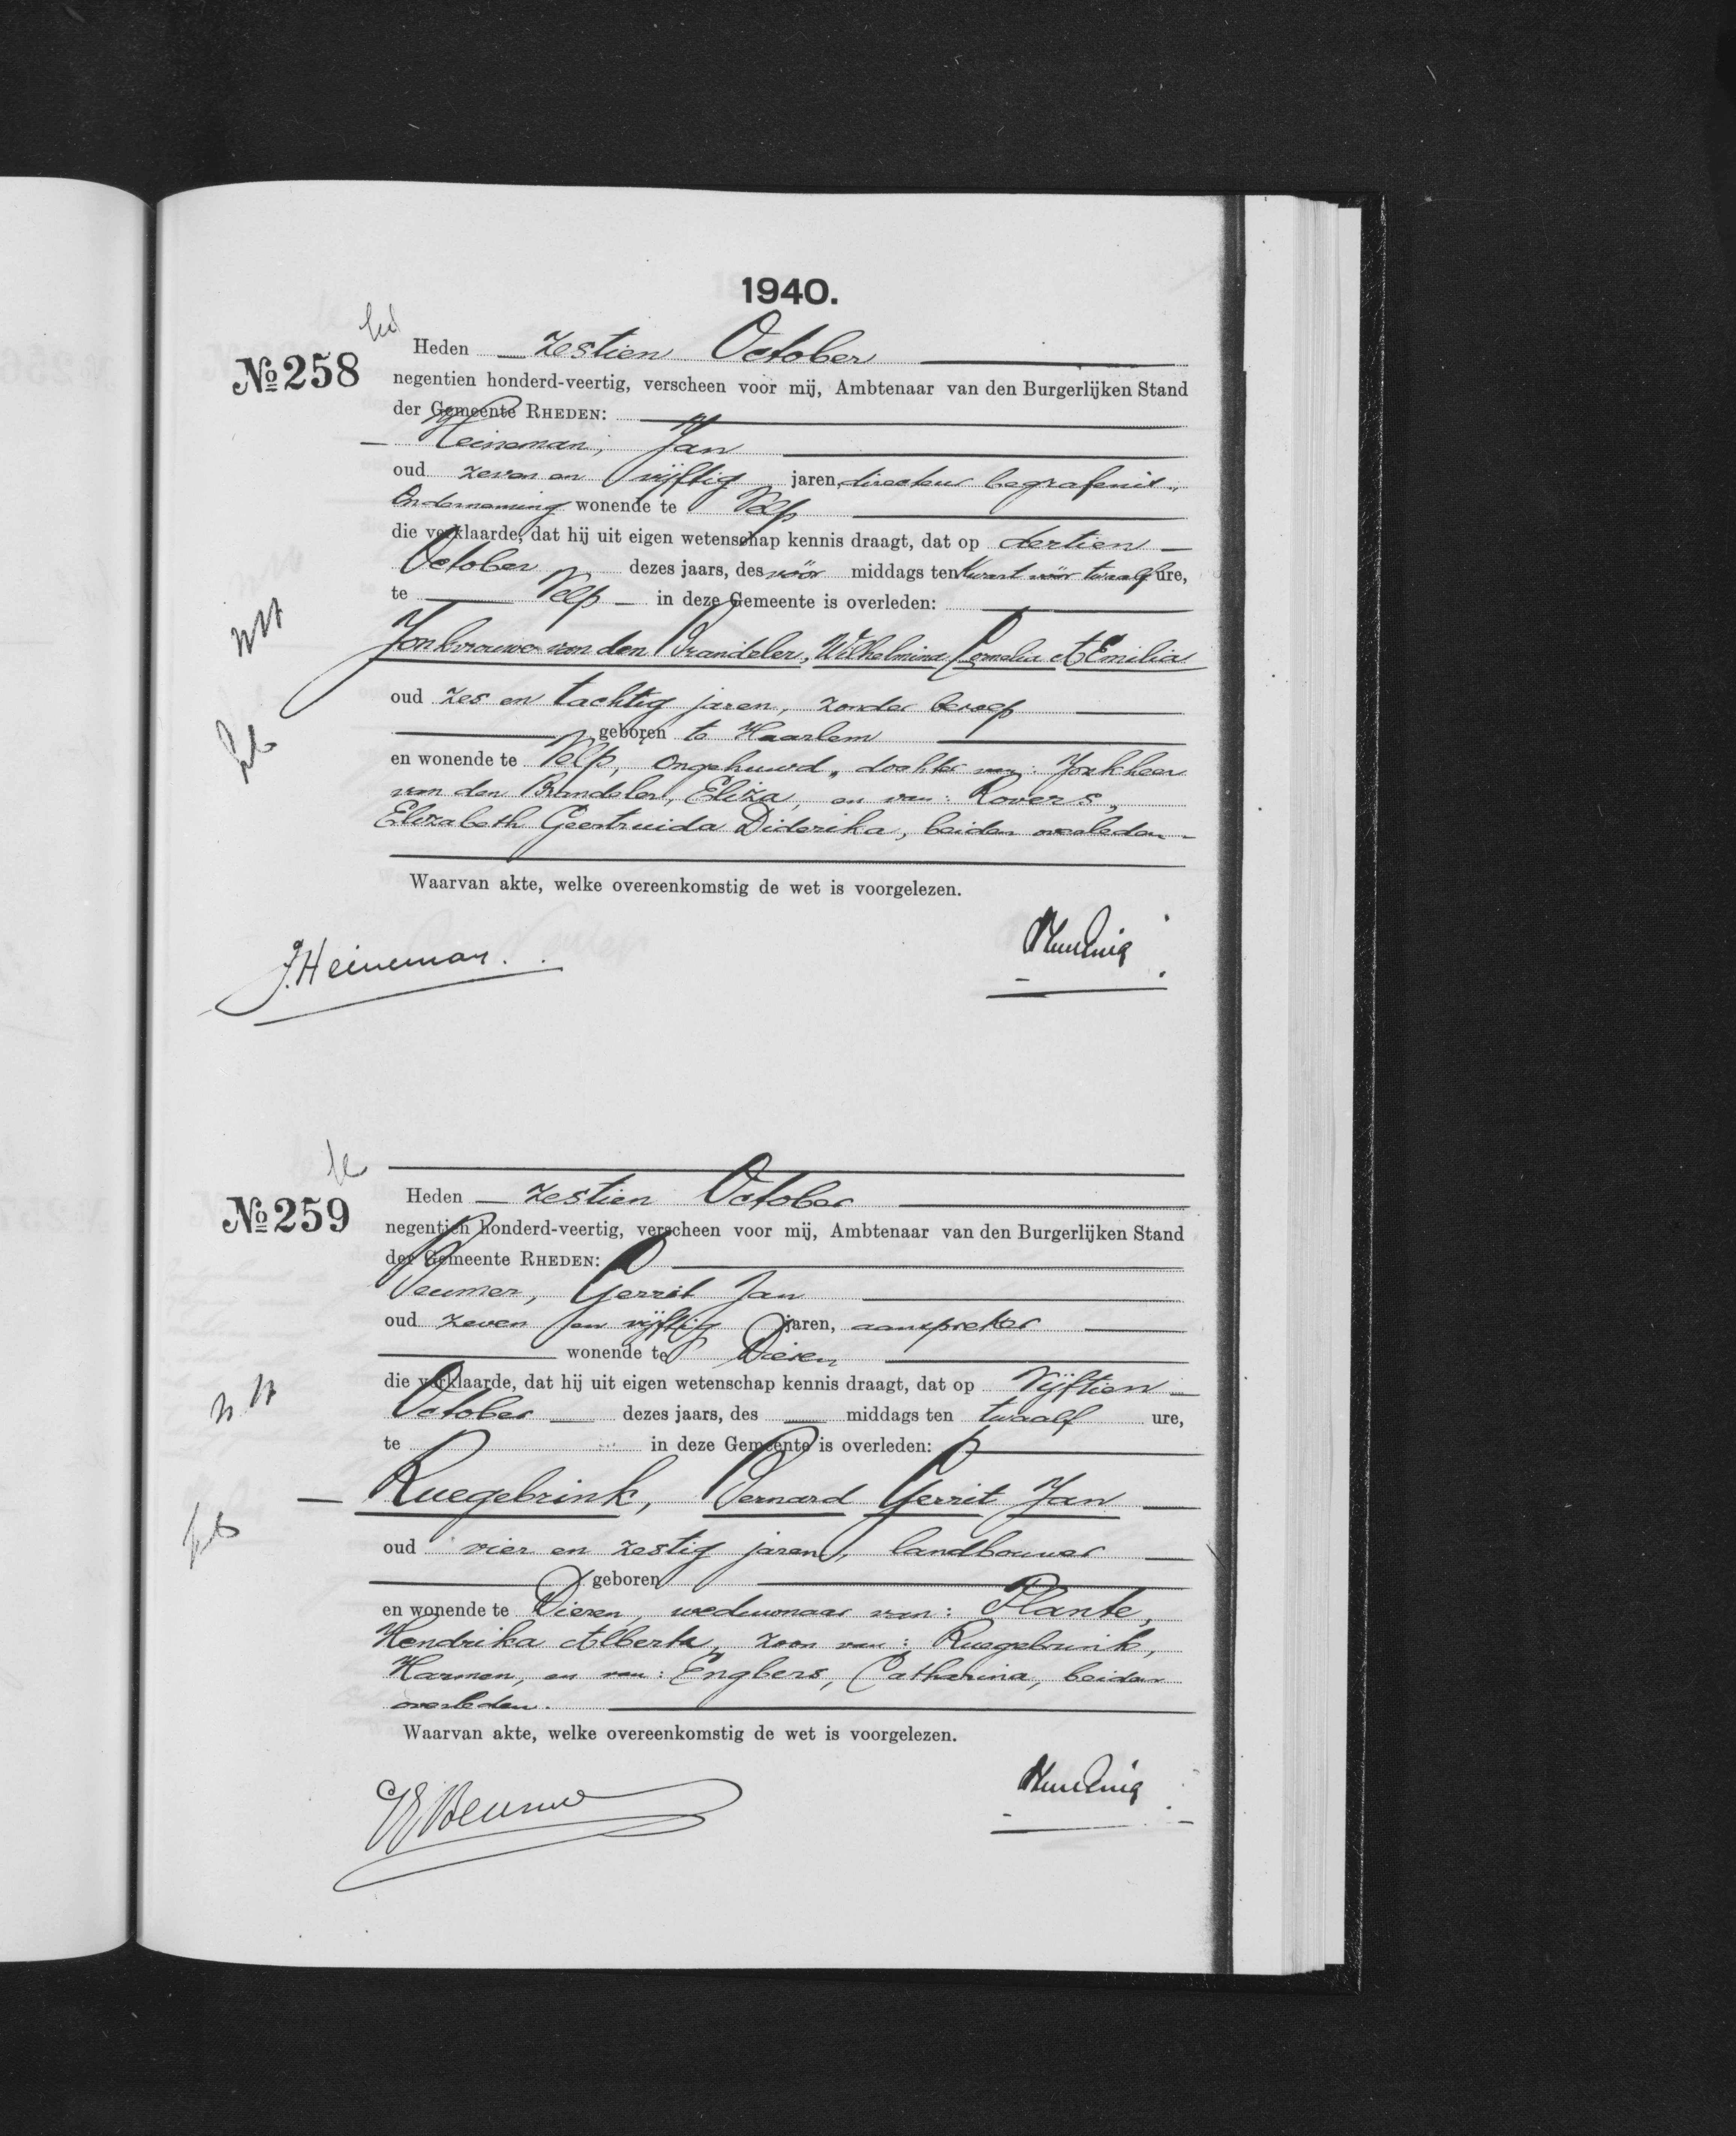 1940.
№ 258
Heden zestien October
negentien honderd-veertig, verscheen voor mij, Ambtenaar van den Burgerlijken Stand
der Gemeente RHEDEN:
Heineman, Jan
oud zeven en vijftig jaren, directeur begrafenis-
Onderneming wonende te Velp
die verklaarde, dat hij uit eigen wetenschap kennis draagt, dat op dertien
October dezes jaars, des vóór middags ten kwart vóór twaalf ure,
te Velp in deze Gemeente is overleden:
Jonkvrouwe van den Brandeler, Wilhelmina Cornelia Aemilia
oud zes en tachtig jaren, zonder beroep
geboren te Haarlem
en wonende te Velp, ongehuwd, dochter van: Jonkheer
van den Brandeler, Eliza, en van: Rovers,
Elizabeth Geertruida Diderika, beiden overleden
Waarvan akte, welke overeenkomstig de wet is voorgelezen.
J. Heineman.
№ 259
Heden zestien October
negentien honderd-veertig, verscheen voor mij, Ambtenaar van den Burgerlijken Stand
der Gemeente RHEDEN:
Beumer, Gerrit Jan
oud zeven en vijftig jaren, aanspreker
wonende te Dieren
die verklaarde, dat hij uit eigen wetenschap kennis draagt, dat op vijftien
October dezes jaars, des middags ten twaalf ure,
te in deze Gemeente is overleden:
Ruegebrink, Bernard Gerrit Jan
oud vier en zestig jaren, landbouwer
geboren
en wonende te Dieren, weduwnaar van: Plante,
Hendrika Alberta, zoon van: Ruegebrink,
Harmen, en van: Engbers, Catharina, beiden
overleden.
Waarvan akte, welke overeenkomstig de wet is voorgelezen.
GJBeumer